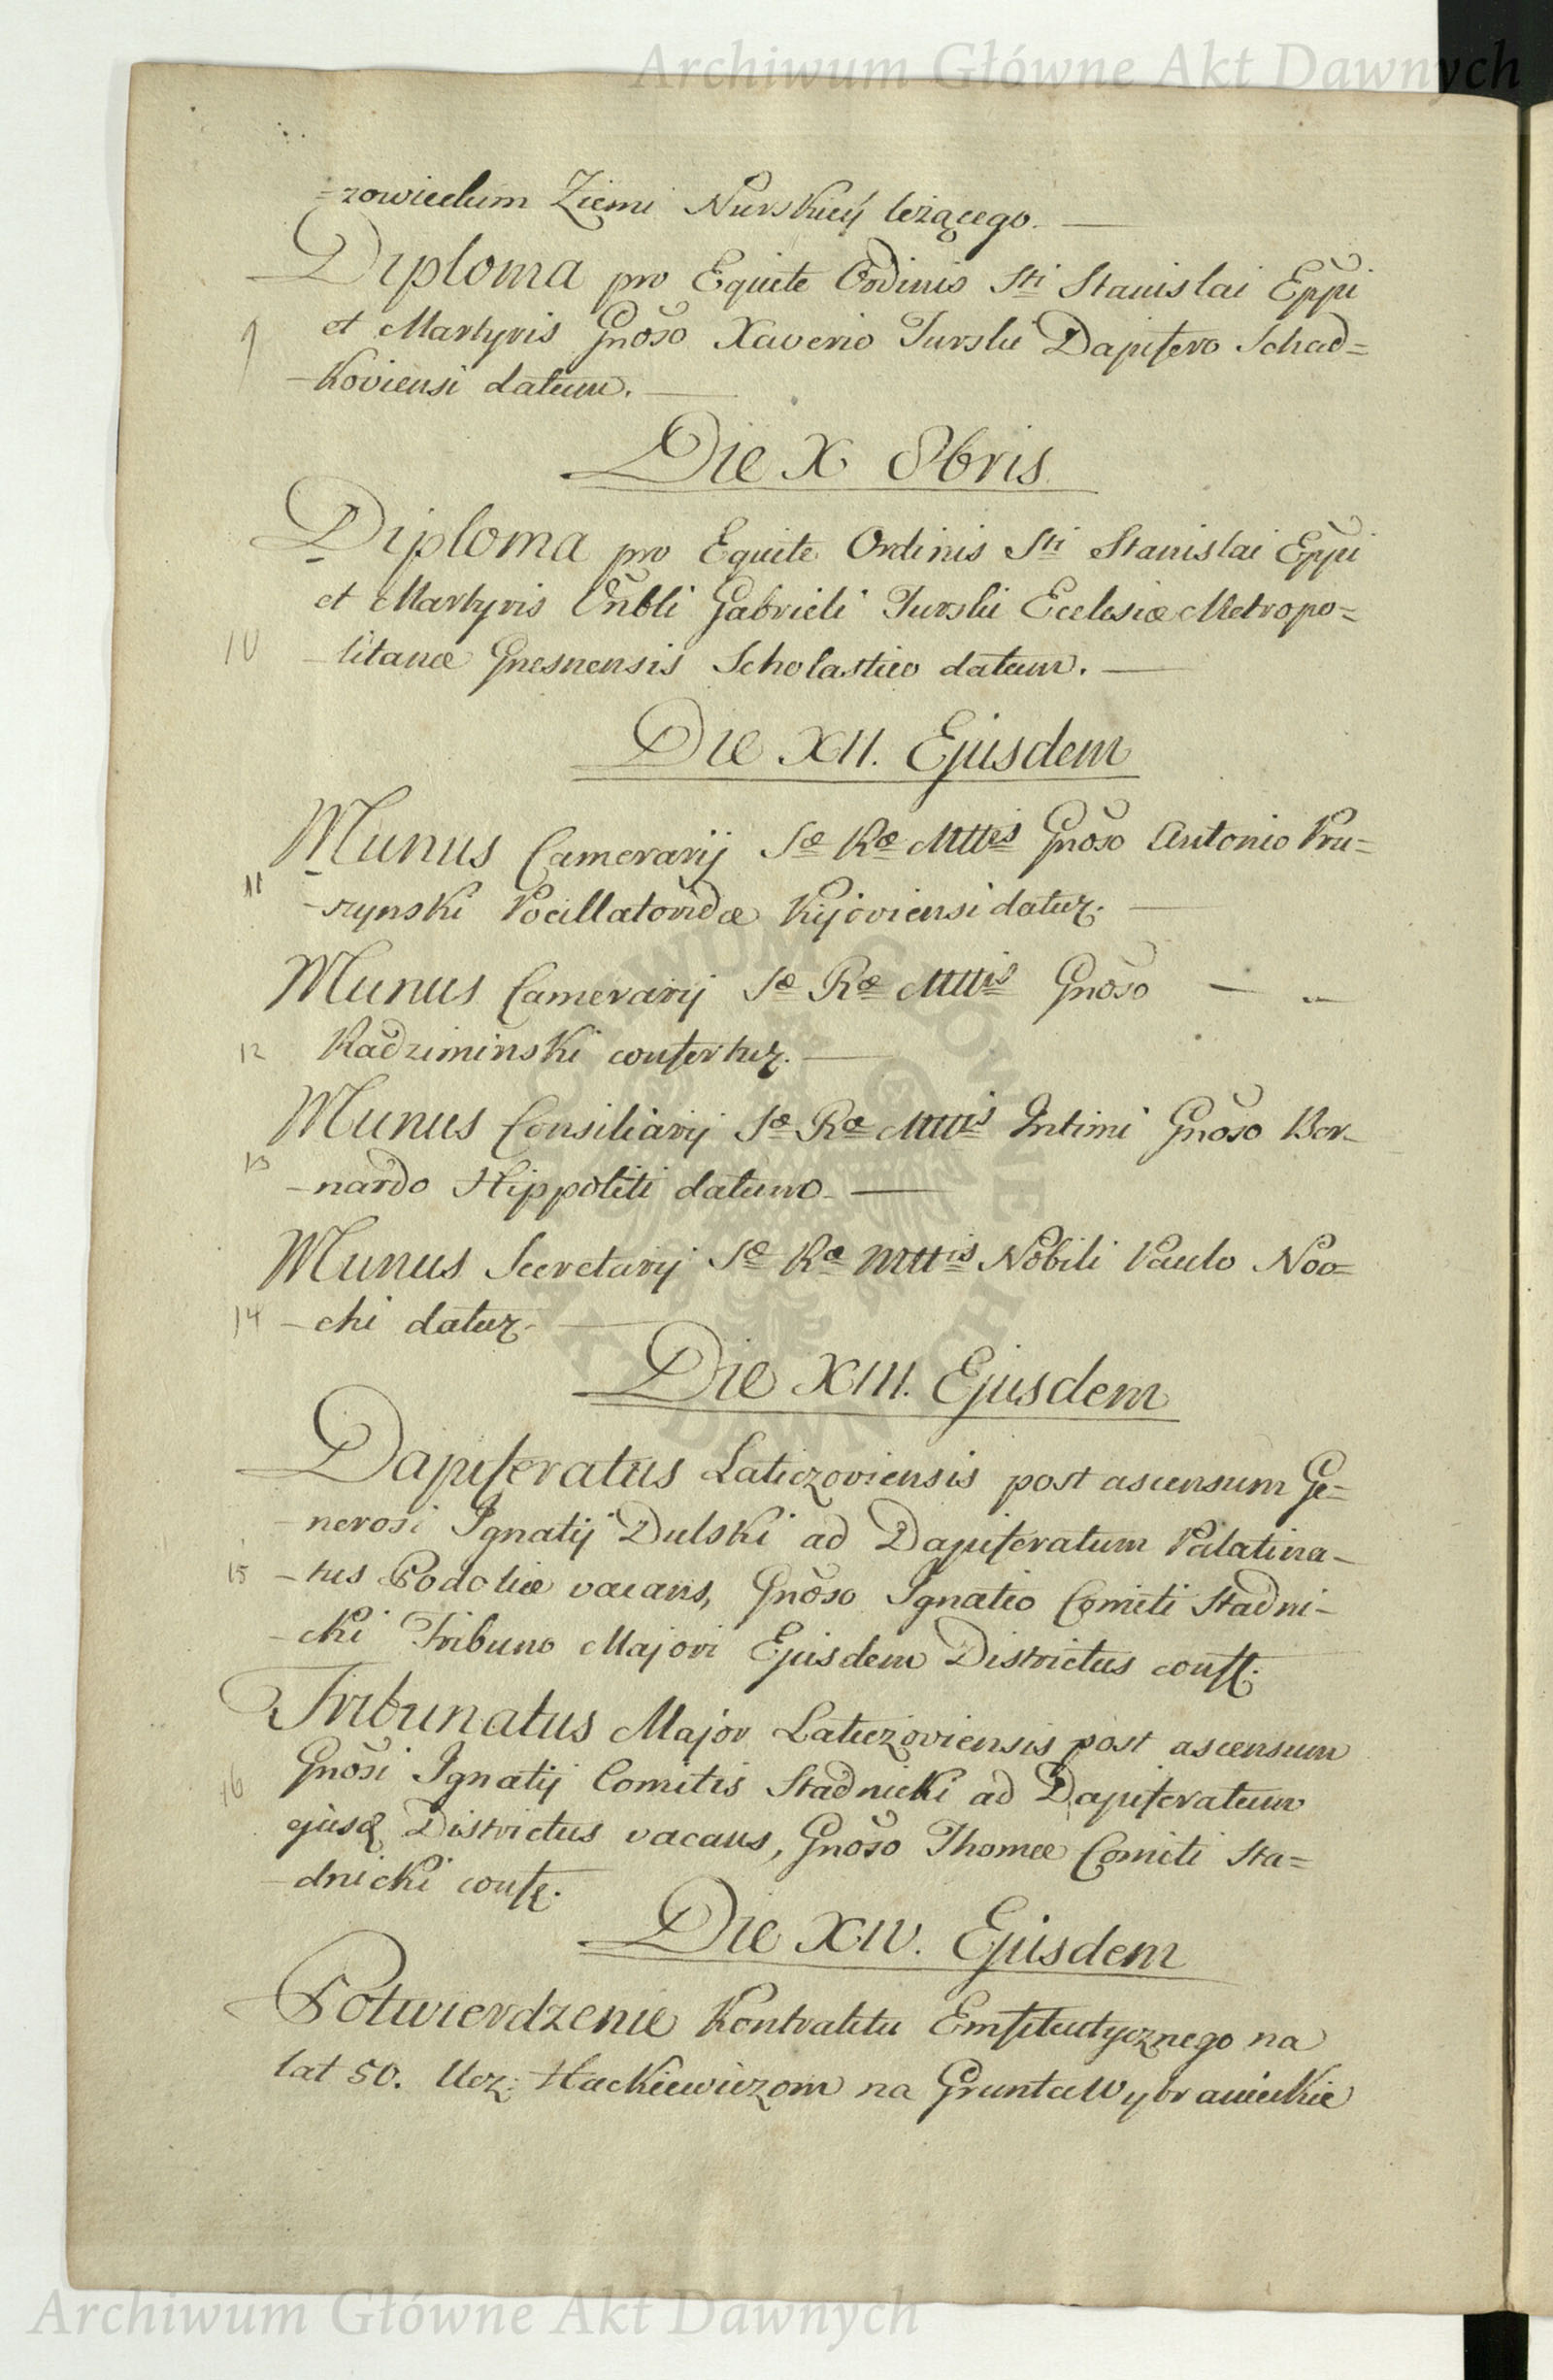 Archiwum Główne Akt Dawnych
=zowieckim Ziemi Nurskiey leżącego.
Diploma pro Equite Ordinis Sti Stanislai Eppi
9 et Martyris Gnoso Xaverio Turski Dapifero Schad=
-koviensi datum.
Die X 8bris
Diploma pro Equite Ordinis Sti Stanislai Eppi
et Martyris Vnbli Gabrieli Turski Ecclesiæ Metropo=
10 -litanæ Gnesnensis Scholastico datum.
Die XII. Ejusdem
Munus Camerarij Sæ Ræ Mttis Gnoso Antonio Pru=
11 -szynski Pocillatoridæ Kijoviensi datur.
Munus Camerarij Sæ Ræ Mttis Gnoso
12 Radziminski confertur.
Munus Consiliarij Sæ Ræ Mttis Intimi Gnoso Ber-
13 -nardo Hippoliti datum.
Munus Secretarij Sæ Ræ Mttis Nobili Paulo Noo=
14 -chi datur.
Die XIII. Ejusdem
Dapiferatus Laticzoviensis post ascensum Ge=
-nerosi Ignatij Dulski ad Dapiferatum Palatina-
15 -tus Podoliæ vacans, Gnoso Ignatio Comiti Stadni-
-cki Tribuno Majori Ejusdem Districtus conft.
Tribunatus Major Laticzoviensis post ascensum
16 Gnosi Ignatij Comitis Stadnicki ad Dapiferatum
ejusq Districtus vacans, Gnoso Thomæ Comiti Sta=
-dnicki conft.
Die XIV. Ejusdem
Potwierdzenie Kontraktu Emfiteutycznego na
lat 50. Ucz: Hackiewiczom na Grunta Wybranieckie
ARCHIWUM GŁÓWNE AKT DAWNYCH
Archiwum Główne Akt Dawnych